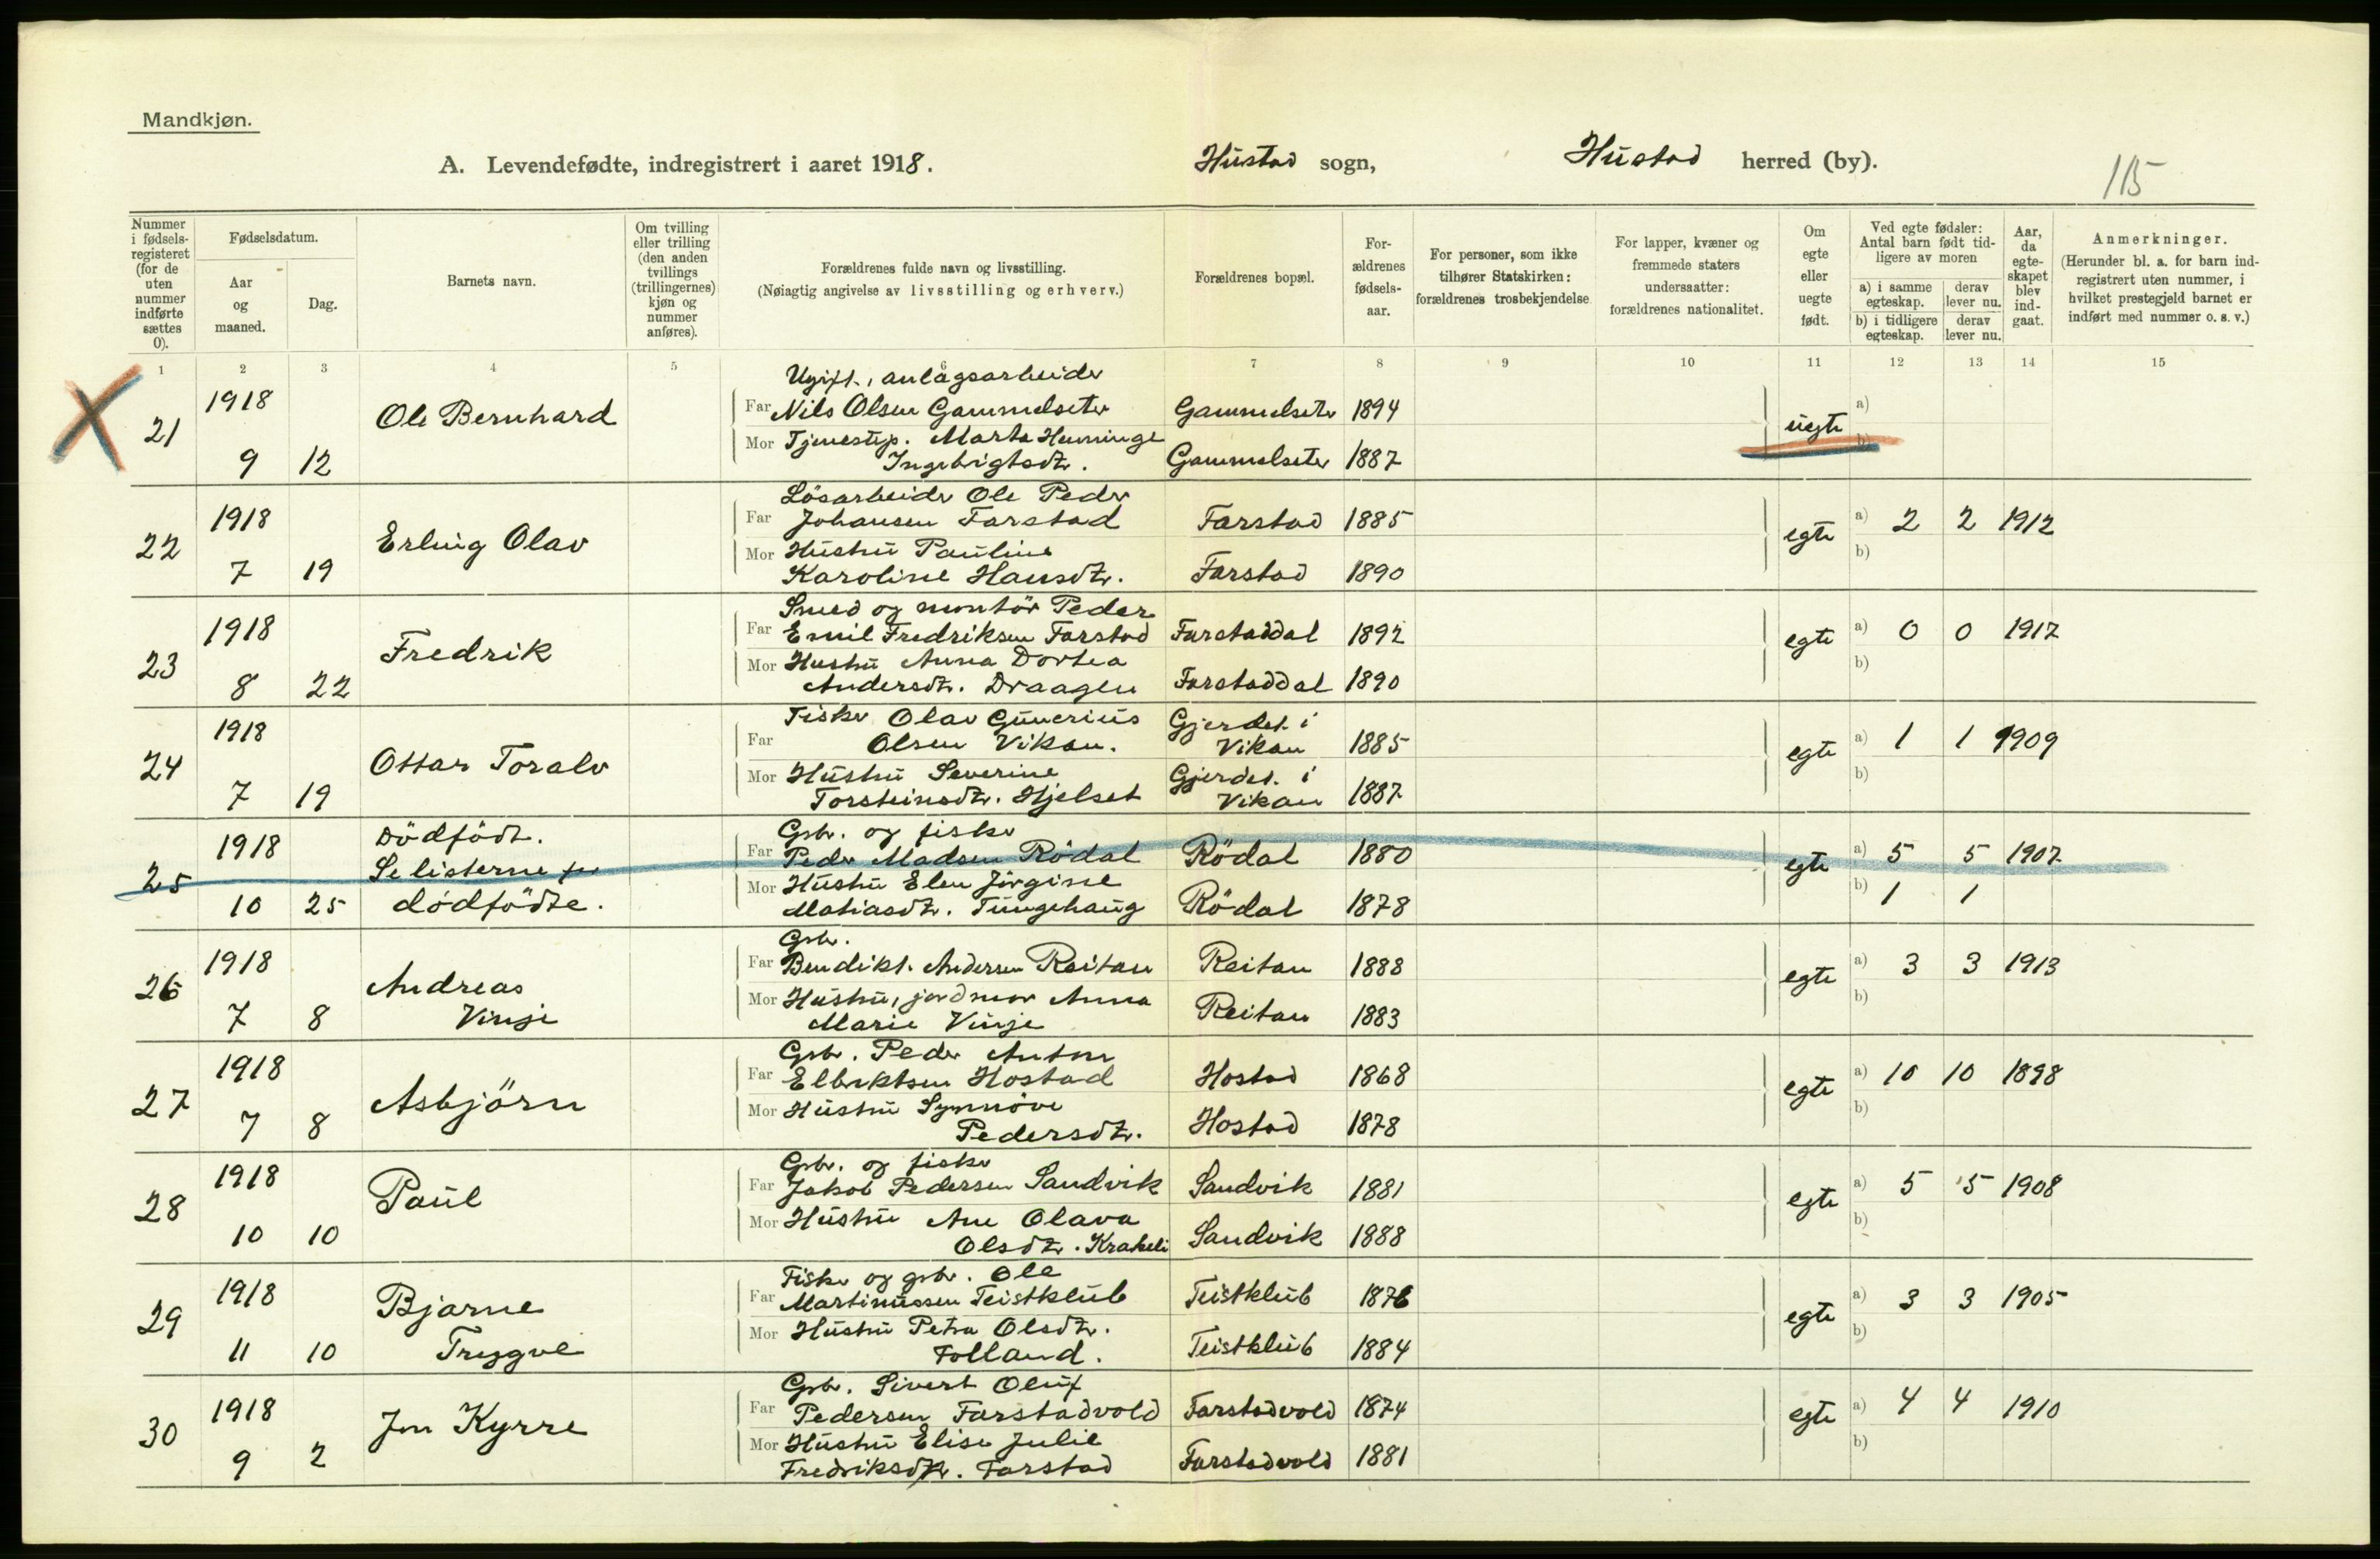 Mandkjøn.
A. Levendefødte, indregistrert i aaret 1918. Hustad sogn, Hustad herred (by). 115
Nummer i fødsels-registeret (for de uten nummer indførte sættes 0).
Fødselsdatum.
Aar og maaned.
Dag.
Barnets navn.
Om tvilling eller trilling (den anden tvillings (trillingernes) kjøn og nummer anføres).
Forældrenes fulde navn og livsstilling.
(Nøiagtig angivelse av livsstilling og erhverv.)
Forældrenes bopæl.
For-ældrenes fødsels-aar.
For personer, som ikke tilhører Statskirken: forældrenes trosbekjendelse
For lapper, kvæner og fremmede staters undersaatter: forældrenes nationalitet.
Om egte eller uegte født.
Ved egte fødsler: Antal barn født tid-ligere av moren
a) i samme egteskap. derav lever nu.
b) i tidligere egteskap. derav lever nu.
Aar, da egte-skapet blev ind-gaat.
Anmerkninger.
(Herunder bl. a. for barn ind-registrert uten nummer, i hvilket prestegjeld barnet er indført med nummer o. s. v.)
1 2 3 4 5 6 7 8 9 10 11 12 13 14 15
21 1918 9 12 Ole Bernhard
Ugift, anlågsarbeider
Far Nils Olsen Gammelseter Gammelseter 1894
uegte a) b)
Mor Tjenestep. Marta Heminge
Ingebrigtsdtr. Gammelseter 1887
22 1918 7 19 Erling Olav
Lösarbeider Ole Peder
Far Johansen Farstad Farstad 1885
egte a) 2 2 1912 b)
Mor Hustru Pauline
Karoline Hansdtr. Farstad 1890
23 1918 8 22 Fredrik
Smed og montör Peder
Far Emil Fredriksen Farstad Farstaddal 1892
egte a) 0 0 1917 b)
Mor Hustru Anna Dortea
Andersdtr. Draagen Farstaddal 1890
24 1918 7 19 Ottar Toralv
Fisker Olav Gunerius
Far Olsen Vikan. Gjerdet i Vikan 1885
egte a) 1 1 1909 b)
Mor Hustru Severine
Torsteinsdtr. Hjelset Gjerdet i Vikan 1887
25 1918 10 25 Dödfödt.
Se listerne for
dödfödte.
Gbr. og fisker
Far Peder Madsen Rödal Rödal 1880
egte a) 5 5 1907 b) 1 1
Mor Hustru Elen Jörgine
Matiasdtr. Tungehaug Rödal 1878
26 1918 7 8 Andreas
Vinje
Gbr.
Far Bendikt Andersen Reitan Reitan 1888
egte a) 3 3 1913 b)
Mor Hustru, jordmor Anna
Marie Vinje Reitan 1883
27 1918 7 8 Asbjörn
Gbr. Peder Anton
Far Elbriktsen Hostad Hostad 1868
egte a) 10 10 1898 b)
Mor Hustru Synnöve
Pedersdtr. Hostad 1878
28 1918 10 10 Paul
Gbr. og fisker
Far Jakob Pedersen Sandvik Sandvik 1881
egte a) 5 5 1908 b)
Mor Hustru Ane Olava
Olsdtr. Krakeli Sandvik 1888
29 1918 11 10 Bjarne
Trygve
Fisker og gbr. Ole
Far Martinussen Teistklub Teistklub 1876
egte a) 3 3 1905 b)
Mor Hustru Petra Olsdtr.
Folland. Teistklub 1884
30 1918 9 2 Jon Kyrre
Gbr. Sivert Oluf
Far Pedersen Farstadvold Farstadvold 1874
egte a) 4 4 1910 b)
Mor Hustru Elise Julie
Fredriksdtr. Farstad Farstadvold 1881